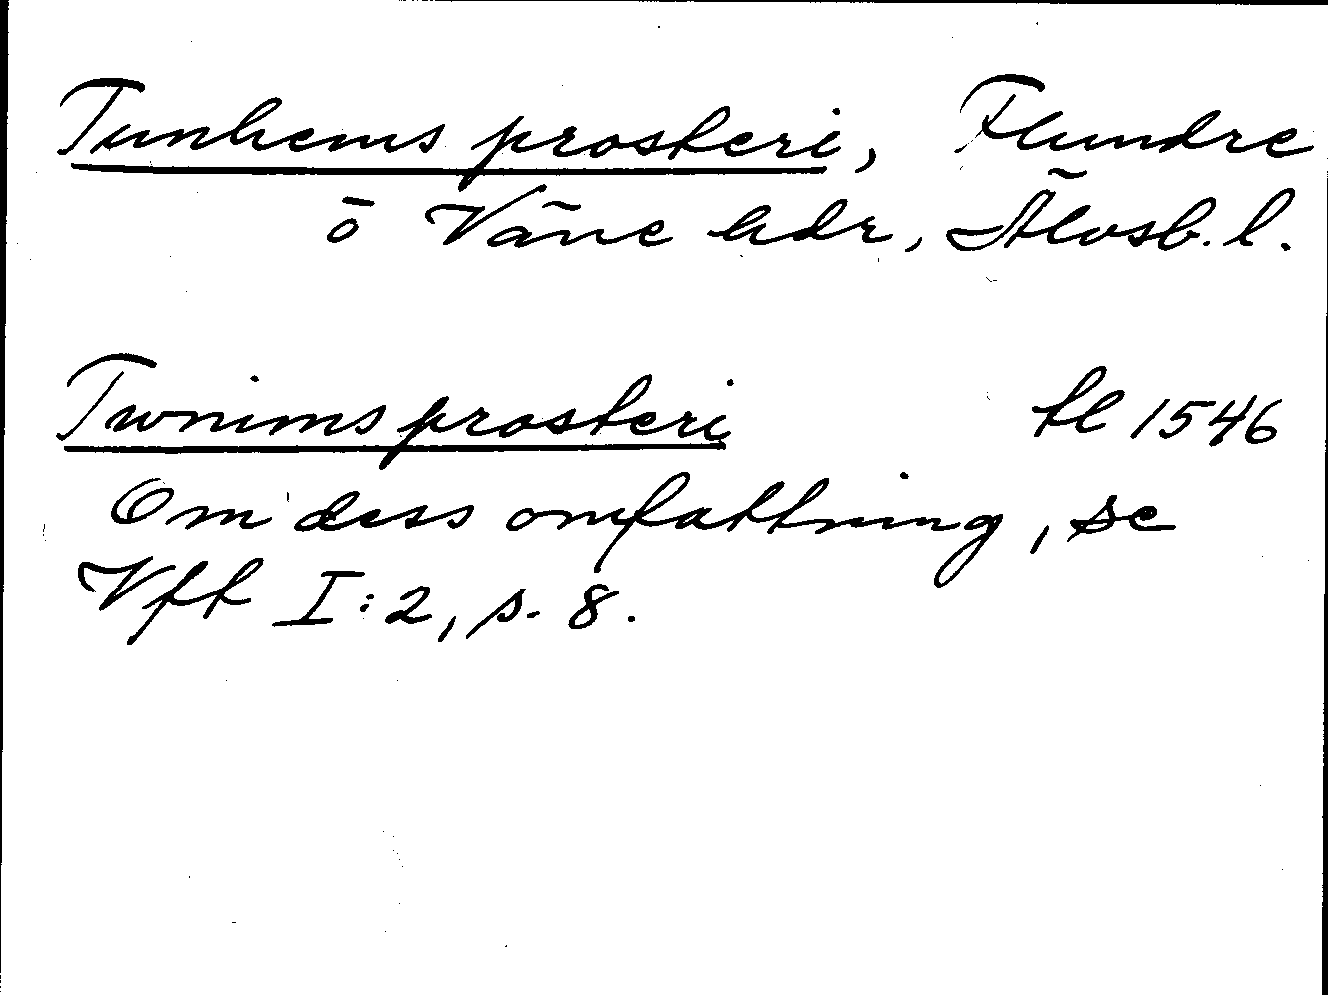 Tunhems prosteri, Flundre
o Väne hdr, Älvsb. l.
Twnims prosteri tl 1546
Om dess omfattning, se
Vft I:2, s. 8.